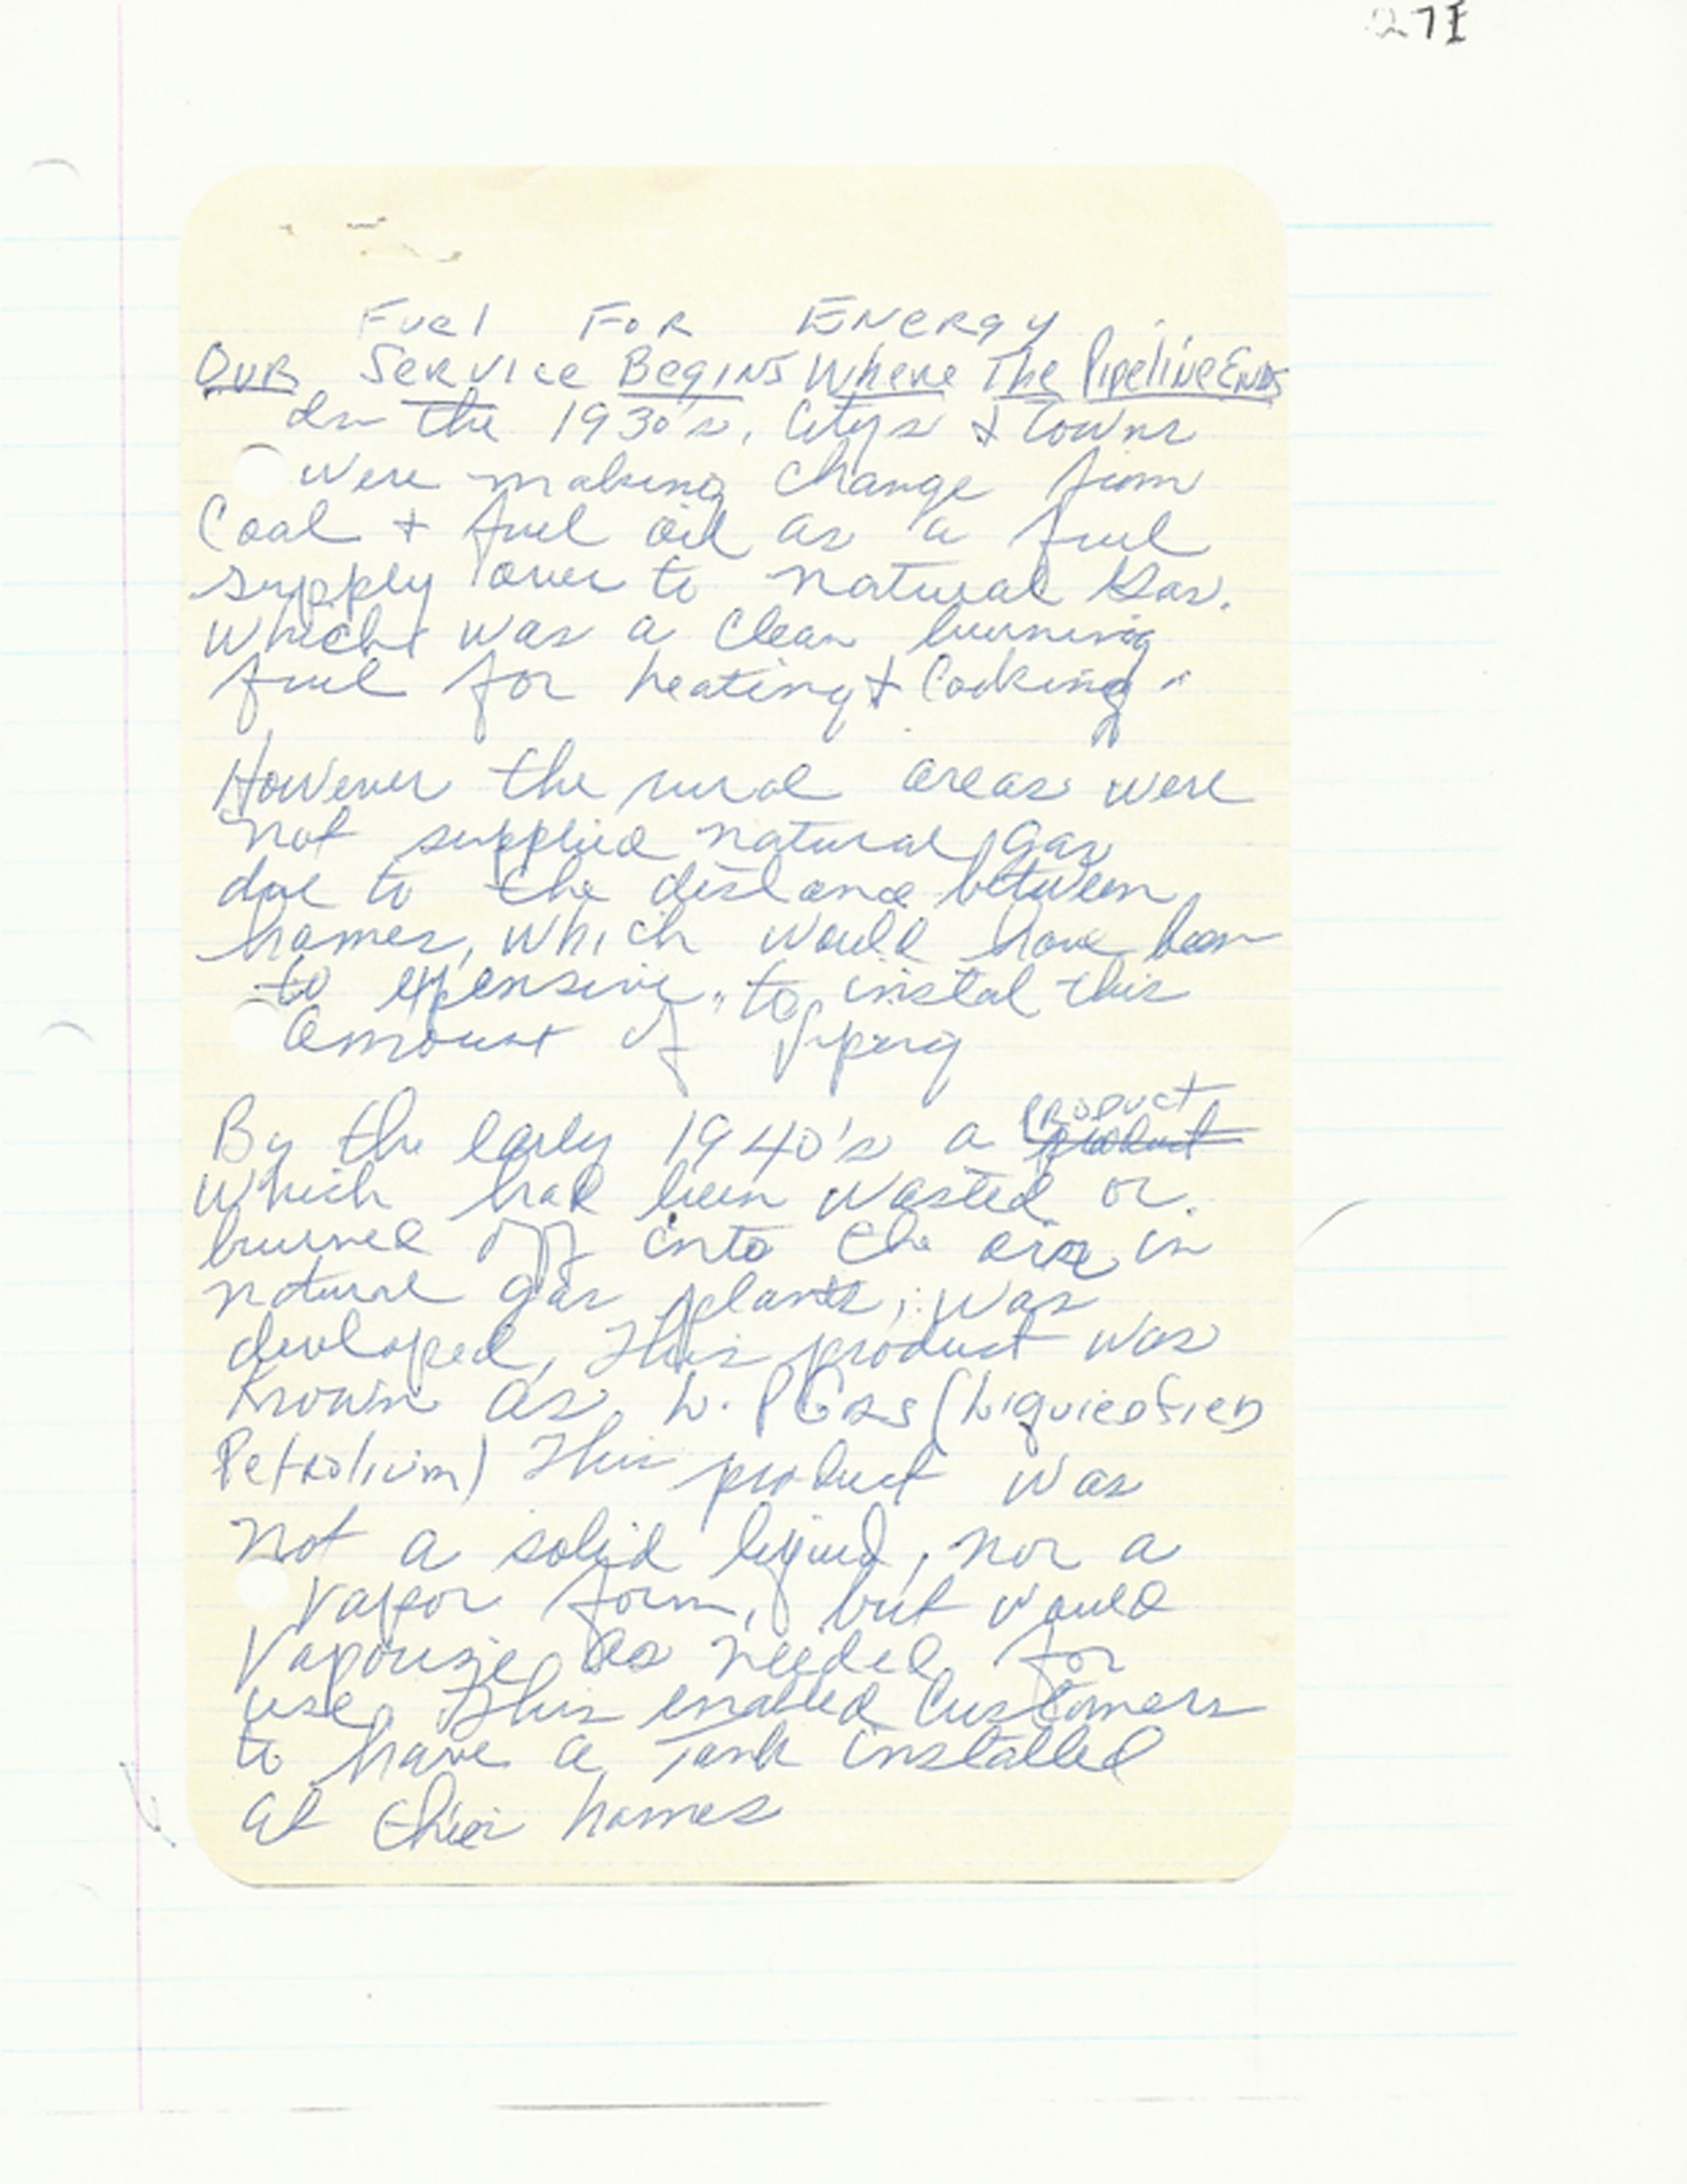 27I
Fuel For Energy
Our Service Begins Where The Pipeline Ends
In the 1930's, Citys & Towns
were making change from
Coal & fuel oil as a fuel
supply over to natural Gas.
which was a clean burning
fuel for heating & Cooking.
However the rural areas were
not supplied natural gas
due to the distance between
homes, which would have been
to expensive, to instal this
amount of piping
By the early 1940's a product
product
which had been wasted or
burned off into the air in
natural gas plants, was
developed, This product was
known as L. P Gas (Liquiedfied
Petrolium) This product was
not a solid liquid, nor a
vapor form, but would
Vaporize as needed for
use, This enabled Customers
to have a Tank installed
at thier homes